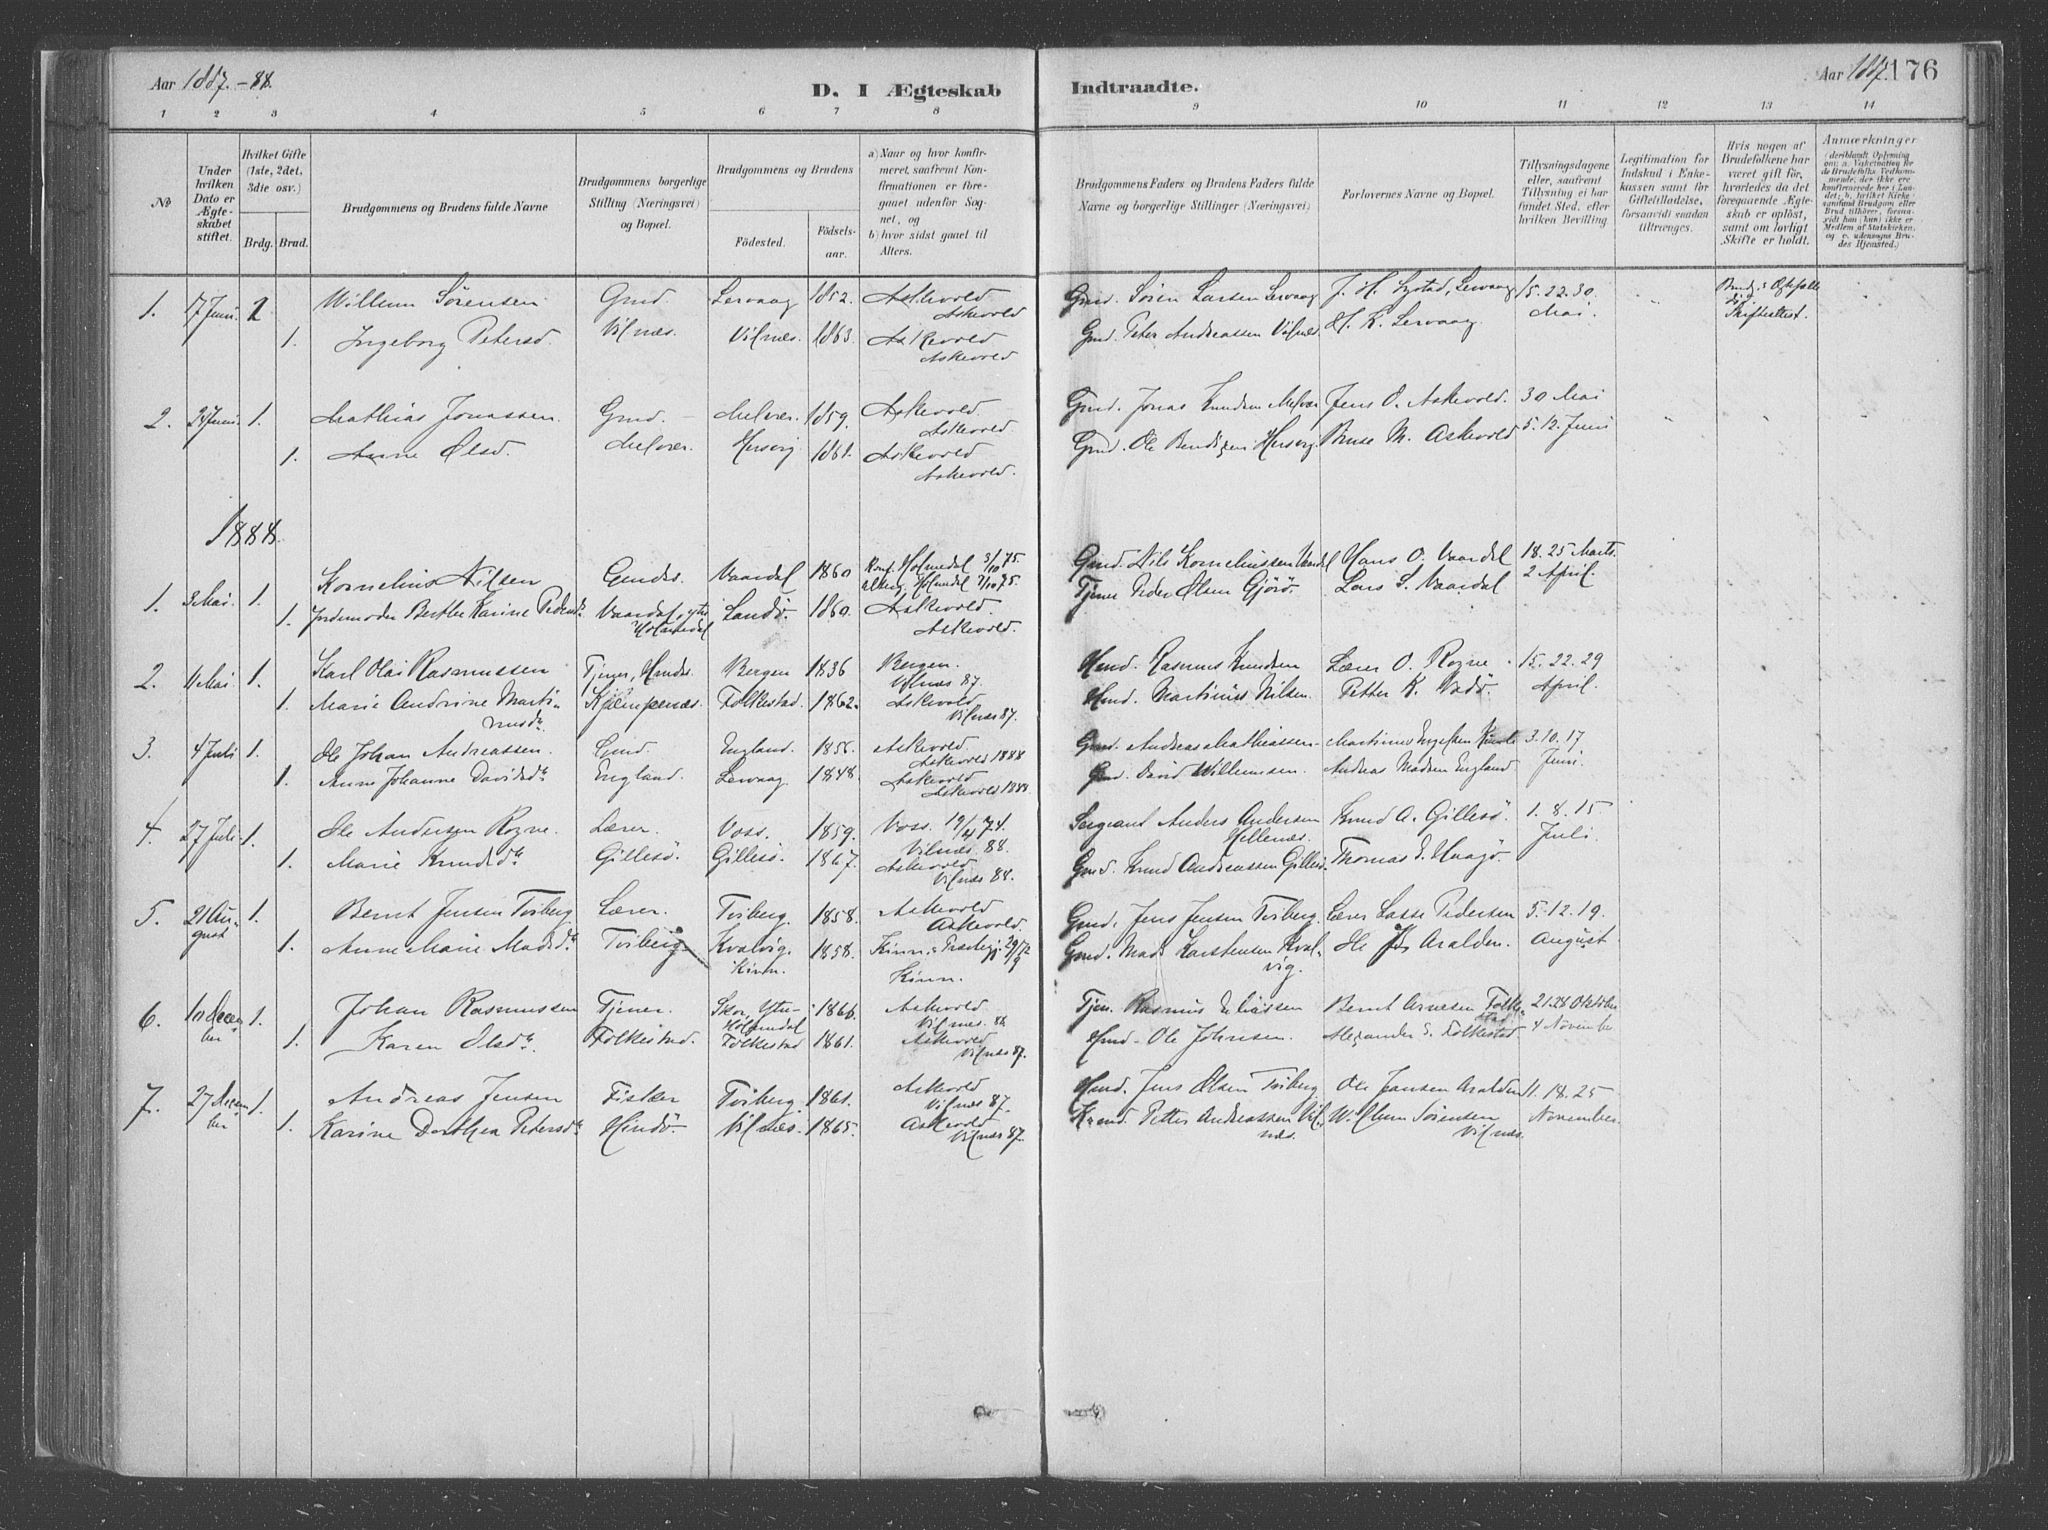 Aar 1887.-88. D. I Ægteskab Indtraadte. Aar 1887. 176
1 2 3 4 5 6 7 8 9 10 11 12 13 14
No
Under hvilken Dato er Ægteskabet stiftet.
Hvilket Gifte (1ste, 2det, 3die osv.)
Brdg. Brud.
Brudgommens og Brudens fulde Navne
Brudgommens borgerlige Stilling (Næringsvei) og Bopæl.
Brudgommens og Brudens
Födested. Födselsaar.
a) Naar og hvor konfirmeret, saafremt Konfirmationen er foregaaet udenfor Sognet, og
b) hvor sidst gaaet til Alters.
Brudgommens Faders og Brudens Faders fulde Navne og borgerlige Stillinger (Næringsvei)
Forlovernes Navne og Bopæl.
Tillysningsdagene eller, saafremt Tillysning ei har fundet Sted, efter hvilken Bevilling
Legitimation for Indskud i Enkekassen samt for Giftetilladelse, forsaavidt saadan tiltrænges.
Hvis nogen af Brudefolkene har været gift før, hvorledes da det foregaaende Ægteskab er oplöst, samt om lovligt Skifte er holdt.
Anmærkninger
1. 7 Juni 2 Willum Sörensen Gmd. Lervaag 1852. Askevold Askevold Gmd. Sören Larsen Lervaag J. H. Systad, Lervaag 15. 22. 30. Mai
1. Ingeborg Petersd. Vilnæs. Vilnæs. 1863. Askevold Askevold Gmd. Peter Andreassen Vilnæs. H. K. Lervaag. Skifteattest.
2. 24 Juni 1. Mathias Jonassen Gmd. Melvær. 1859. Askevold. Askevold. Gmd. Jonas Knudsen Melvær Jens O. Askevold. 30 Mai
1. Anne Olsd. Melvær. Hersvig 1861. Askevold Askevold. Gmd. Ole Hersvig M. Askevold 5. 12. Juni
1888.
1. 3 Mai. 1. Kornelius Nilsen Gmdss. Vaardal 1860 Konf. Holmedal 3/10 75. alterg. Holmedal 7/10 75. Gmd. Nils Korneliussen Vardal Hans O. Vaardal 18. 25 Marts.
1. Jordemoder Berthe Karine Pedersd. Vaardal, ytre Holmedal Landö. 1860. Askevold. Askevold. Tjener Peder Olsen Gjörö. Lars S. Vaardal 2 April.
2. 4 Mai 1. Karl Olai Rasmussen Tjener, Hmdss. Bergen 1836 Bergen. Vilnæs 87. Hmd. Rasmus Knudsen Lærer O. Rogne 15. 22. 29
1. Marie Andrine Martinusdr. Kjempenæs. Folkestad. 1862. Askevold. Vilnæs 87. Hmd. Martinus Nilsen. Petter K. April
3. 4 Juli 1. Ole Johan Andreassen. Gmd. England. 1856. Askevold. Askevold 1888 Gmd. Andreas Mathiassen Martinus 3. 10. 17
1. Anne Johanne Davidsdr. England. Lervaag 1848. Askevold Askevold 1888 Gmd. David Willumsen. Andreas Madsen England. Juni.
4. 27 Juli 1. Ole Andersen Rogne. Lærer. Voss. 1859. Voss. 19/4 74. Vilnæs. 88. Sergeant Anders Andersen Hellenæs. Knud A. Gillesö. 1. 8. 15
1. Marie Knudsdr. Gillesö. Gillesö. 1867. Askevold Vilnæs 88. Gmd. Knud Andreassen Gillesö. Thomas E. Haagö. Juli
5. 21 August 1. Bernt Jensen Tviberg Lærer. Tviberg. 1858. Askevold Askevold. Gmd. Jens Jensen Tviberg. Lærer Lasse Pedersen 5. 12. 19.
1. Anne Marie Madsdr. Tviberg. Kvalvig. Kinn. 1858. Kinn. 29/9 72 Kinn. Gmd. Mads Karstensen Kvalvig. Ole Aralden. August
6. 10 December 1. Johan Rasmussen Tjener. Skor, Ytre Holmedal 1866. Askevold Vilnæs. 86 Tjen. Rasmus Eliassen Bernt Arnesen Folkestad 21. 28 Oktober
1. Karen Olsdr. Folkestad. Folkestad 1861. Askevold Vilnæs 87. Hmd. Ole Johnsen. Alexander E. Folkestad. 4 November
7. 27 December 1. Andreas Jensen Fisker Tviberg. 1861. Askevold Vilnæs 87. Hmd. Jens Olsen Tviberg Ole Jensen Aralden 11. 18. 25
1. Karine Dorthea Petersdr. Hindö. Vilnæs. 1865. Askevold Vilnæs 87. Petter Andreassen Vilnæs. Wilhelm Sörensen Vilnæs. November